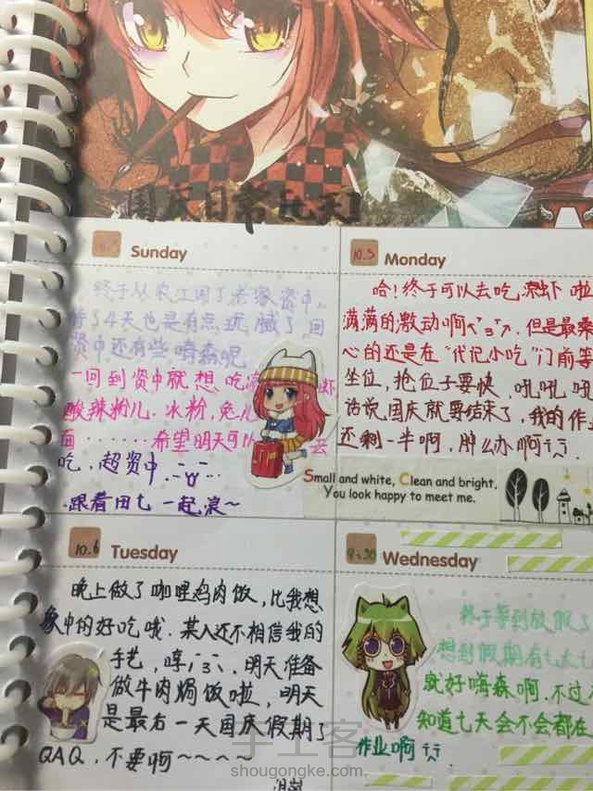 国庆日常玩天!
Sunday
终于从农江回了老家资中。
待了4天也是有点玩腻了,回
资中还有些嗨森呢,
一回到资中就想吃凉 虾
酸辣粉儿.冰粉,兔儿
面·······希望明天可以 去
吃,超资中
.跟着田七一起浪~
10.5 Monday
哈!终于可以去吃凉虾啦
满满的激动啊 但是最
心的还是在“代记小吃”门前等
坐位,抢位子要快,吼吼吼
话说,国庆就要结束了,我的作
还剩一半啊,肿么办啊
Small and white, Clean and bright,
You look happy to meet me.
10.6 Tuesday
晚上做了咖哩鸡肉饭,比我想
象中的好吃哦.某人还不相信我的
手艺,哼 明天准备
做牛肉焗饭啦,明天
是最后一天国庆假期了
QAQ,不要啊~~~~
9.30 Wednesday
终于等到放假了
想到假期有七天
就好嗨森啊,不过
知道七天会不会都在
作业啊
手工客
shougongke.com